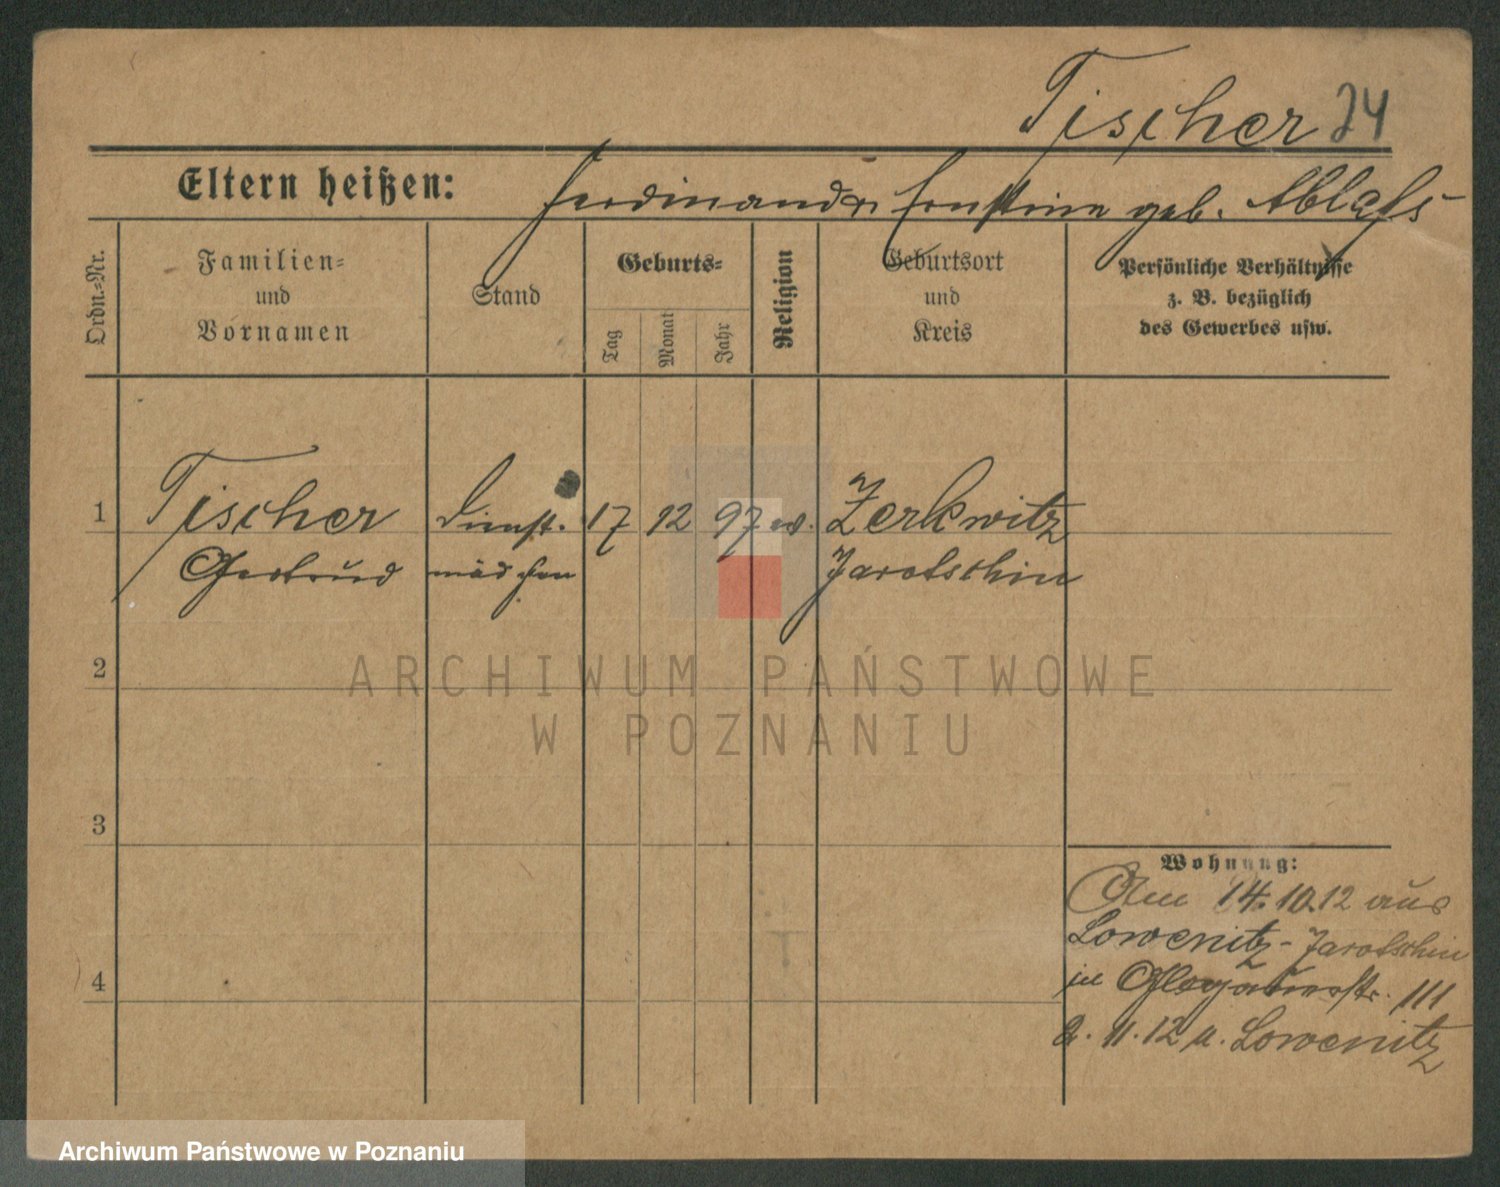 Tischer 24
Eltern heißen: Ferdinand u Ernstine geb. Ablass
Ordn.-Nr.
Familien-
und
Vornamen
Stand
Geburts-
Tag
Monat
Jahr
Religion
Geburtsort
und
Kreis
Persönliche Verhältnisse
z. B. bezüglich
des Gewerbes usw.
1 Tischer Dienst- 17 12 97 ev. Zerkwitz
Gertrud mädchen Jarotschin
2
3
4
Wohnung:
Am 14.10.12 aus
Lowenitz - Jarotschin
in 111
2. 11. 12 n. Lowenitz
ARCHIWUM PAŃSTWOWE
W POZNANIU
Archiwum Państwowe w Poznaniu